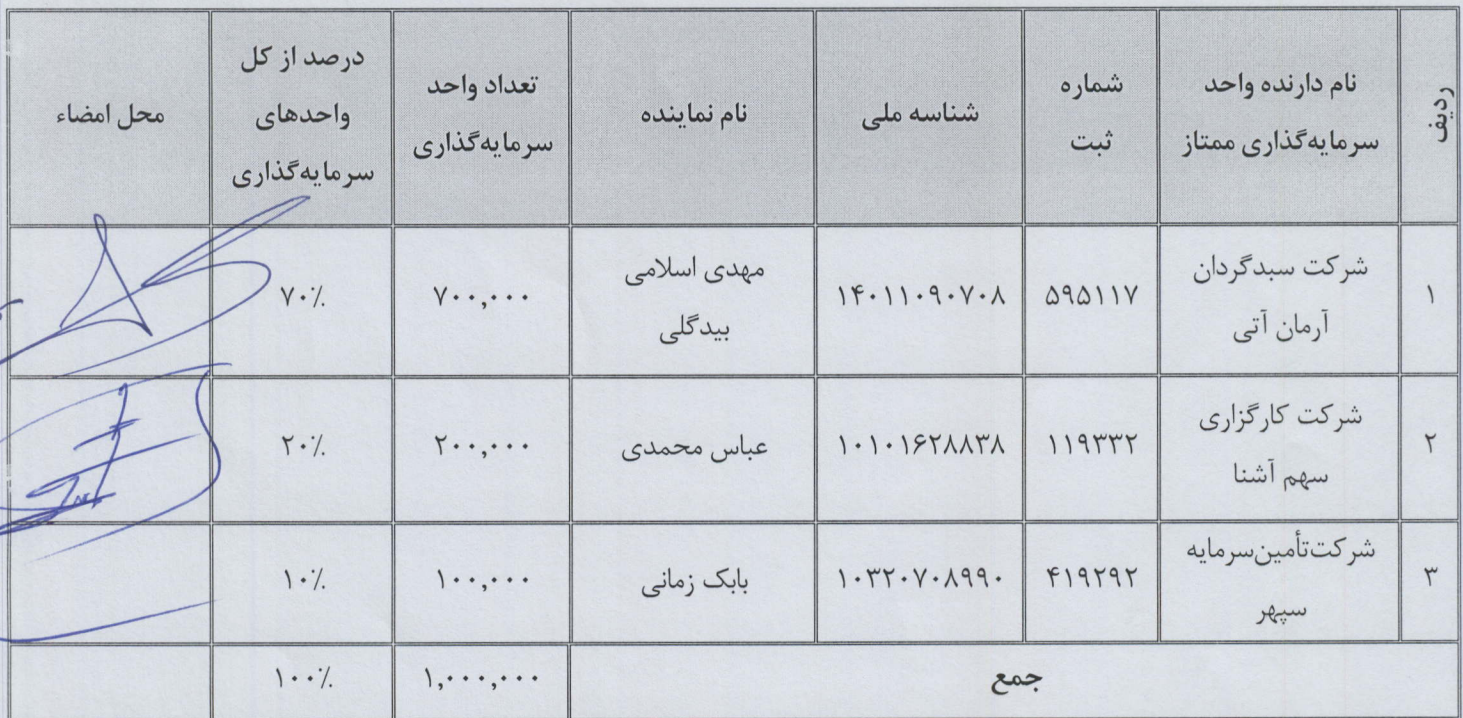 ردیف
نام دارنده واحد
سرمایه‌گذاری ممتاز
شماره
ثبت
شناسه ملی
نام نماینده
تعداد واحد
سرمایه‌گذاری
درصد از کل
واحدهای
سرمایه‌گذاری
محل امضاء
۱
شرکت سبدگردان
آرمان آتی
۵۹۵۱۱۷
۱۴۰۱۱۰۹۰۷۰۸
مهدی اسلامی
بیدگلی
۷۰۰,۰۰۰
۷۰٪
۲
شرکت کارگزاری
سهم آشنا
۱۱۹۳۳۲
۱۰۱۰۱۶۲۸۸۳۸
عباس محمدی
۲۰۰,۰۰۰
۲۰٪
۳
شرکت‌تأمین‌سرمایه
سپهر
۴۱۹۲۹۲
۱۰۳۲۰۷۰۸۹۹۰
بابک زمانی
۱۰۰,۰۰۰
۱۰٪
جمع
۱,۰۰۰,۰۰۰
۱۰۰٪